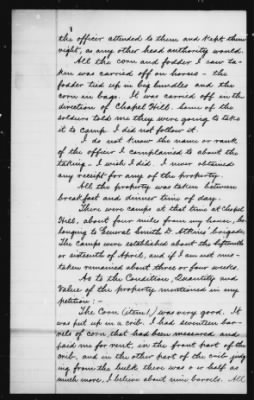 8
the officer attended to them and kept them
right, as any other head authority would.
All the corn and fodder I saw ta-
ken was carried off on horses - the
fodder tied up in big bundles and the
corn in bags. It was carried off in the
direction of Chapel Hill. Some of the
soldiers told me they were going to take
it to camp. I did not follow it.
I do not know the name or rank
of the officer I complained to about the
taking - I wish I did. I never obtained
any receipt for any of the property.
All the property was taken between
breakfast and dinner time of day.
There were camps at that time at Chapel
Hill, about four miles from my house, be-
longing to General Smith D. Atkins' brigade.
The camps were established about the fifteenth
or sixteenth of April, and if I am not mis-
taken remained about three or four weeks.
As to the Condition, Quantity and
Value of the property mentioned in my
petition: -
The Corn (item 1,) was very good. It
was put up in a crib. I had seventeen bar-
rels of corn that had been measured and
paid me for rent, in the front part of the
crib, and in the other part of the crib judg-
ing from the bulk there was a half as
much more, I believe about nine barrels. All